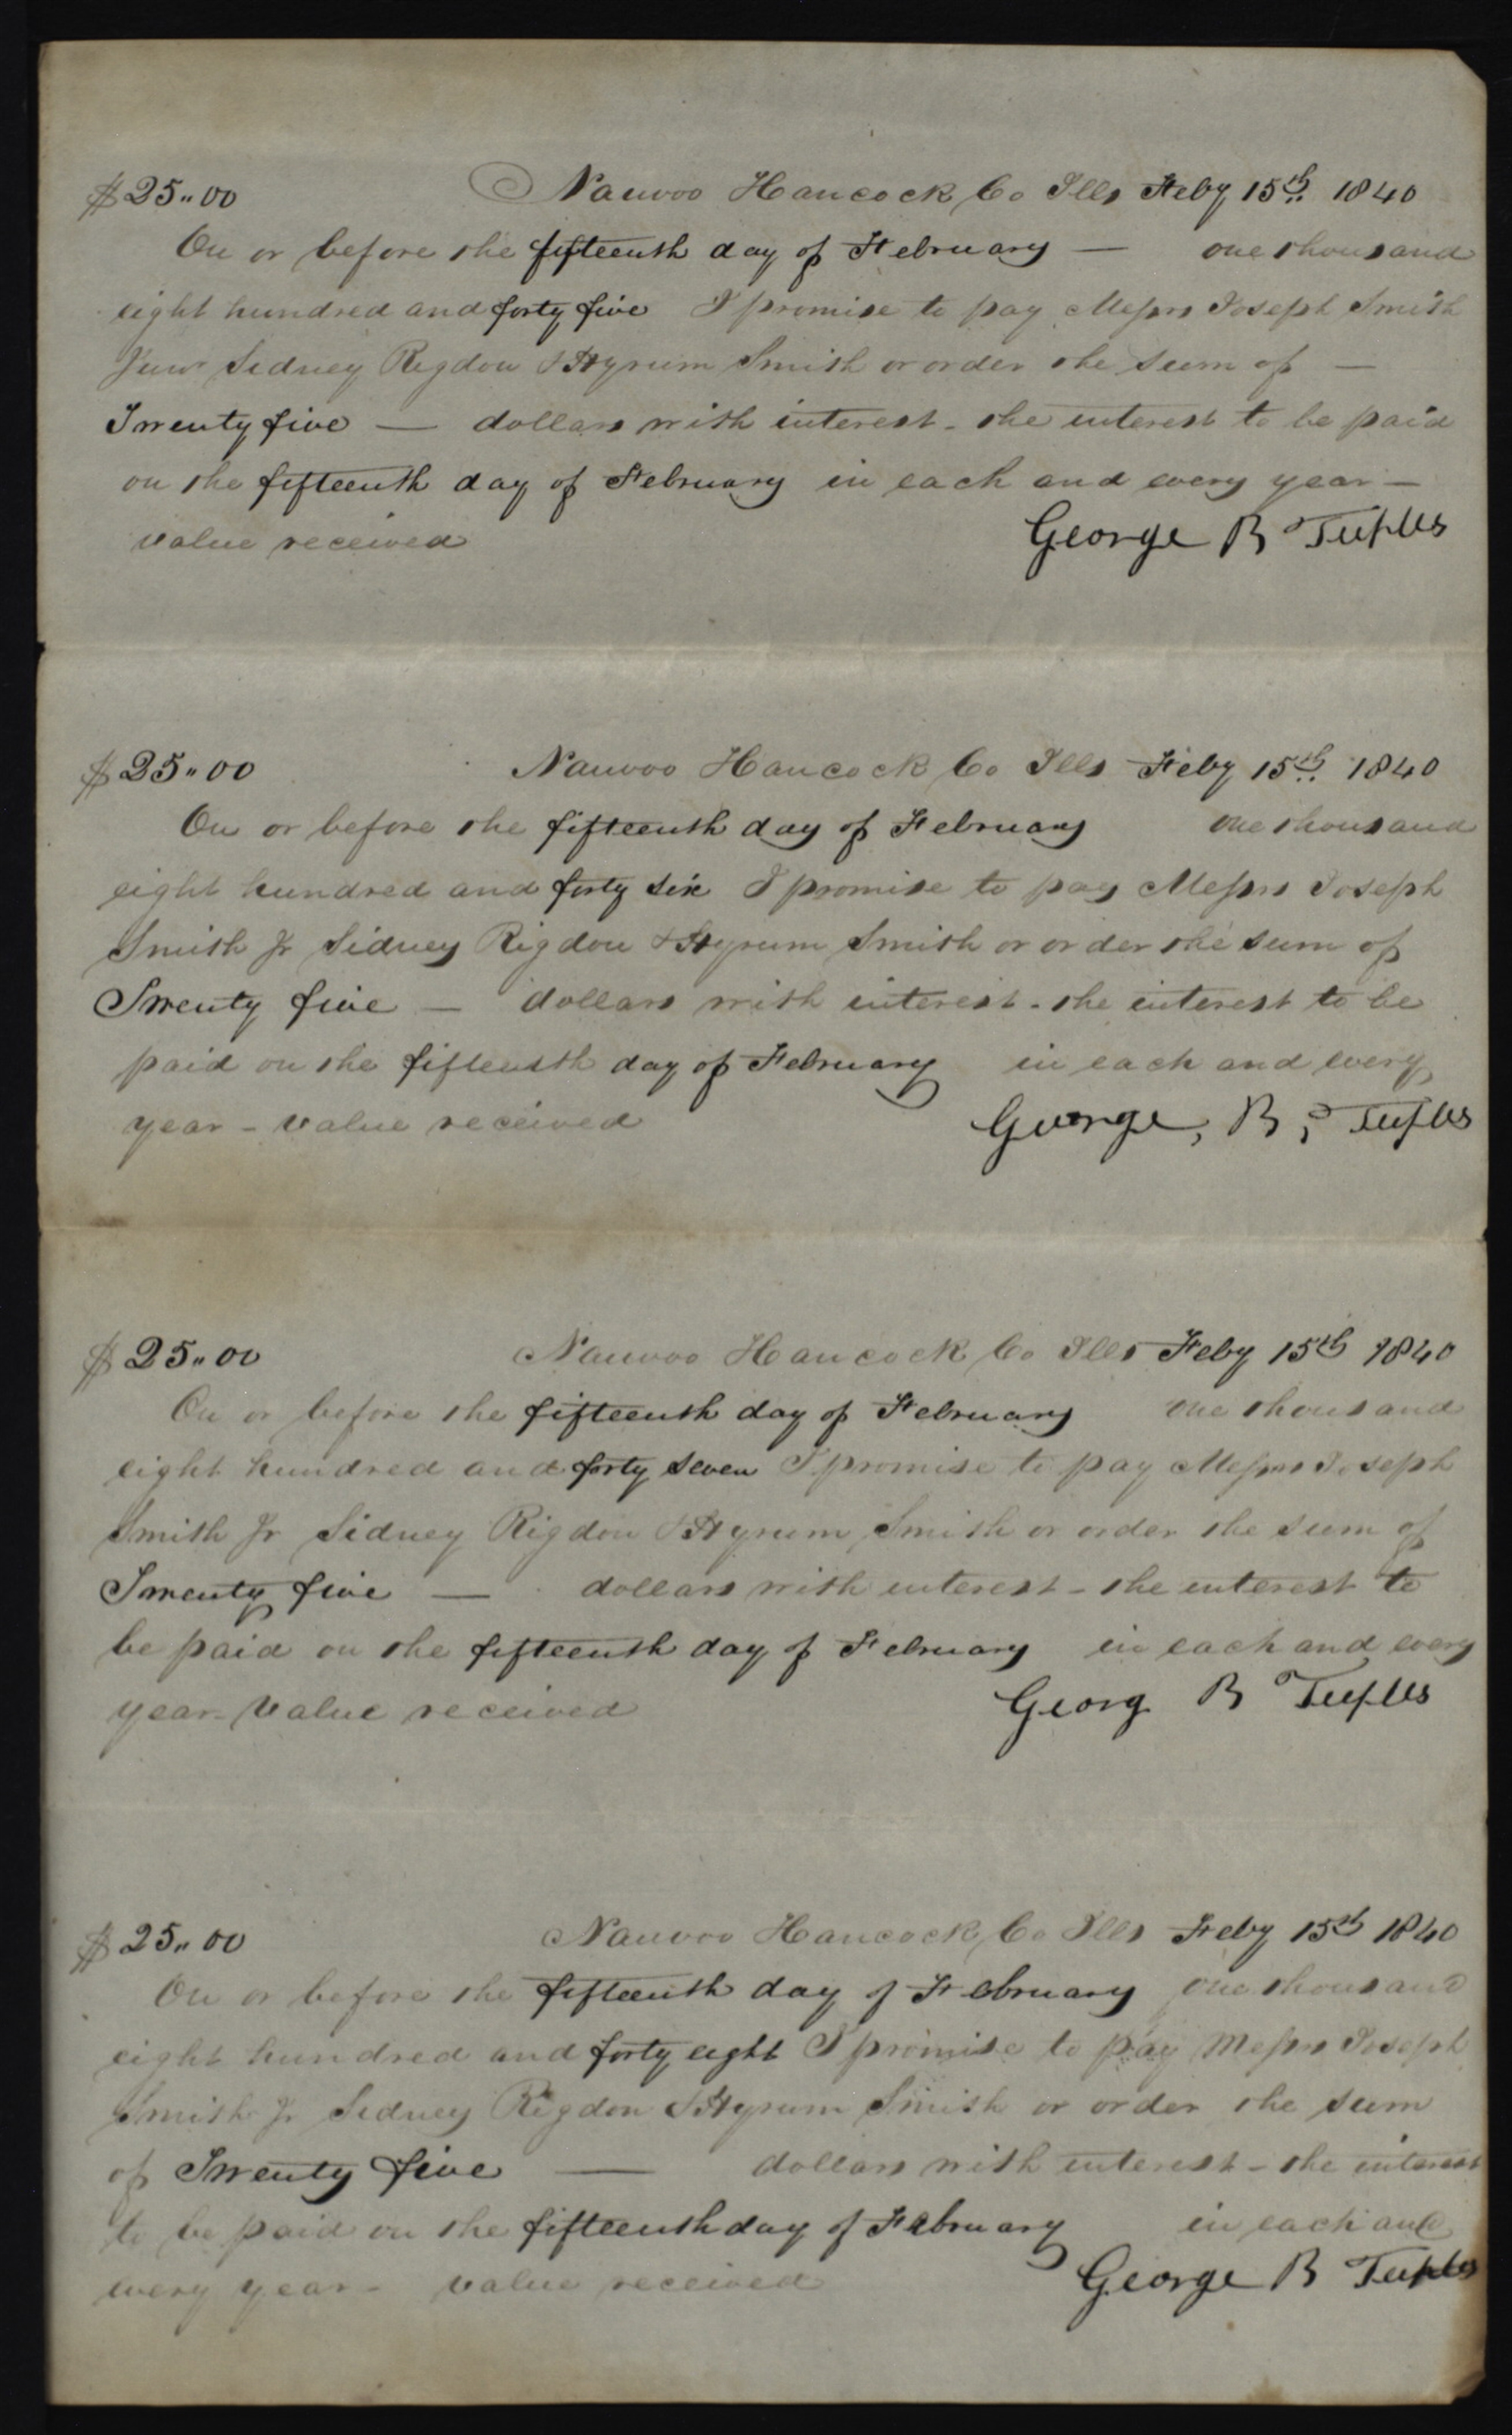 $25.. 00 Nauvoo Hancock Co Ills Feby 15th 1840
On or before the fifteenth day of February — one thousand
eight hundred and forty five I promise to pay Messrs Joseph Smith
Junr Sidney Rigdon & Hyrum Smith or order the sum of —
Twenty five — dollars with interest - the interest to be paid
on the fifteenth day of February in each and every year —
value received George B Tuples
$25.. 00 Nauvoo Hancock Co Ills Feby 15th 1840
On or before the fifteenth day of February one thousand
eight hundred and forty six I promise to pay Messrs Joseph
Smith Jr Sidney Rigdon & Hyrum Smith or order the sum of
Twenty five — dollars with interest - the interest to be
paid on the fifteenth day of February in each and every
year - value received George, B, Tuples
$25.. 00 Nauvoo Hancock Co Ills Feby 15th 1840
On or before the fifteenth day of February one thousand
eight hundred and forty seven I promise to pay Messrs Joseph
Smith Jr Sidney Rigdon & Hyrum Smith or order the sum of
Twenty five — dollars with interest - the interest to
be paid on the fifteenth day of February in each and every
year - value received Georg B Tuples
$25.. 00 Nauvoo Hancock Co Ills Feby 15th 1840
On or before the fifteenth day of February one thousand
eight hundred and forty eight I promise to pay Messrs Joseph
Smith Jr Sidney Rigdon & Hyrum Smith or order the sum
of Twenty five — dollars with interest - the interest
to be paid on the fifteenth day of February in each and
every year - value received George B Tuples